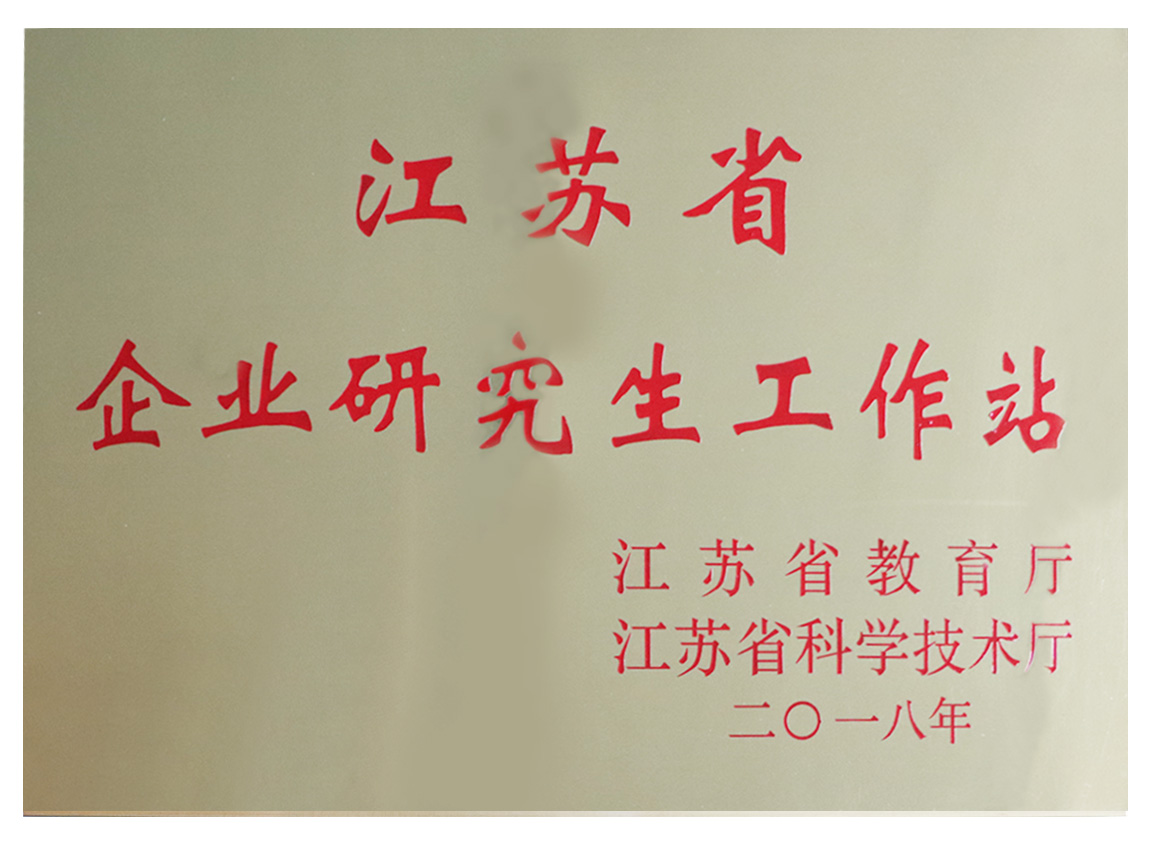 江苏省
企业研究生工作站
江苏省教育厅
江苏省科学技术厅
二〇一八年